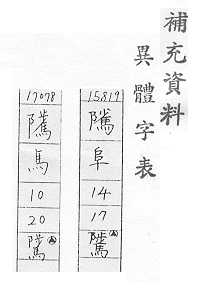 補充資料
異體字表
15819
阜
14
17
17078
馬
10
20